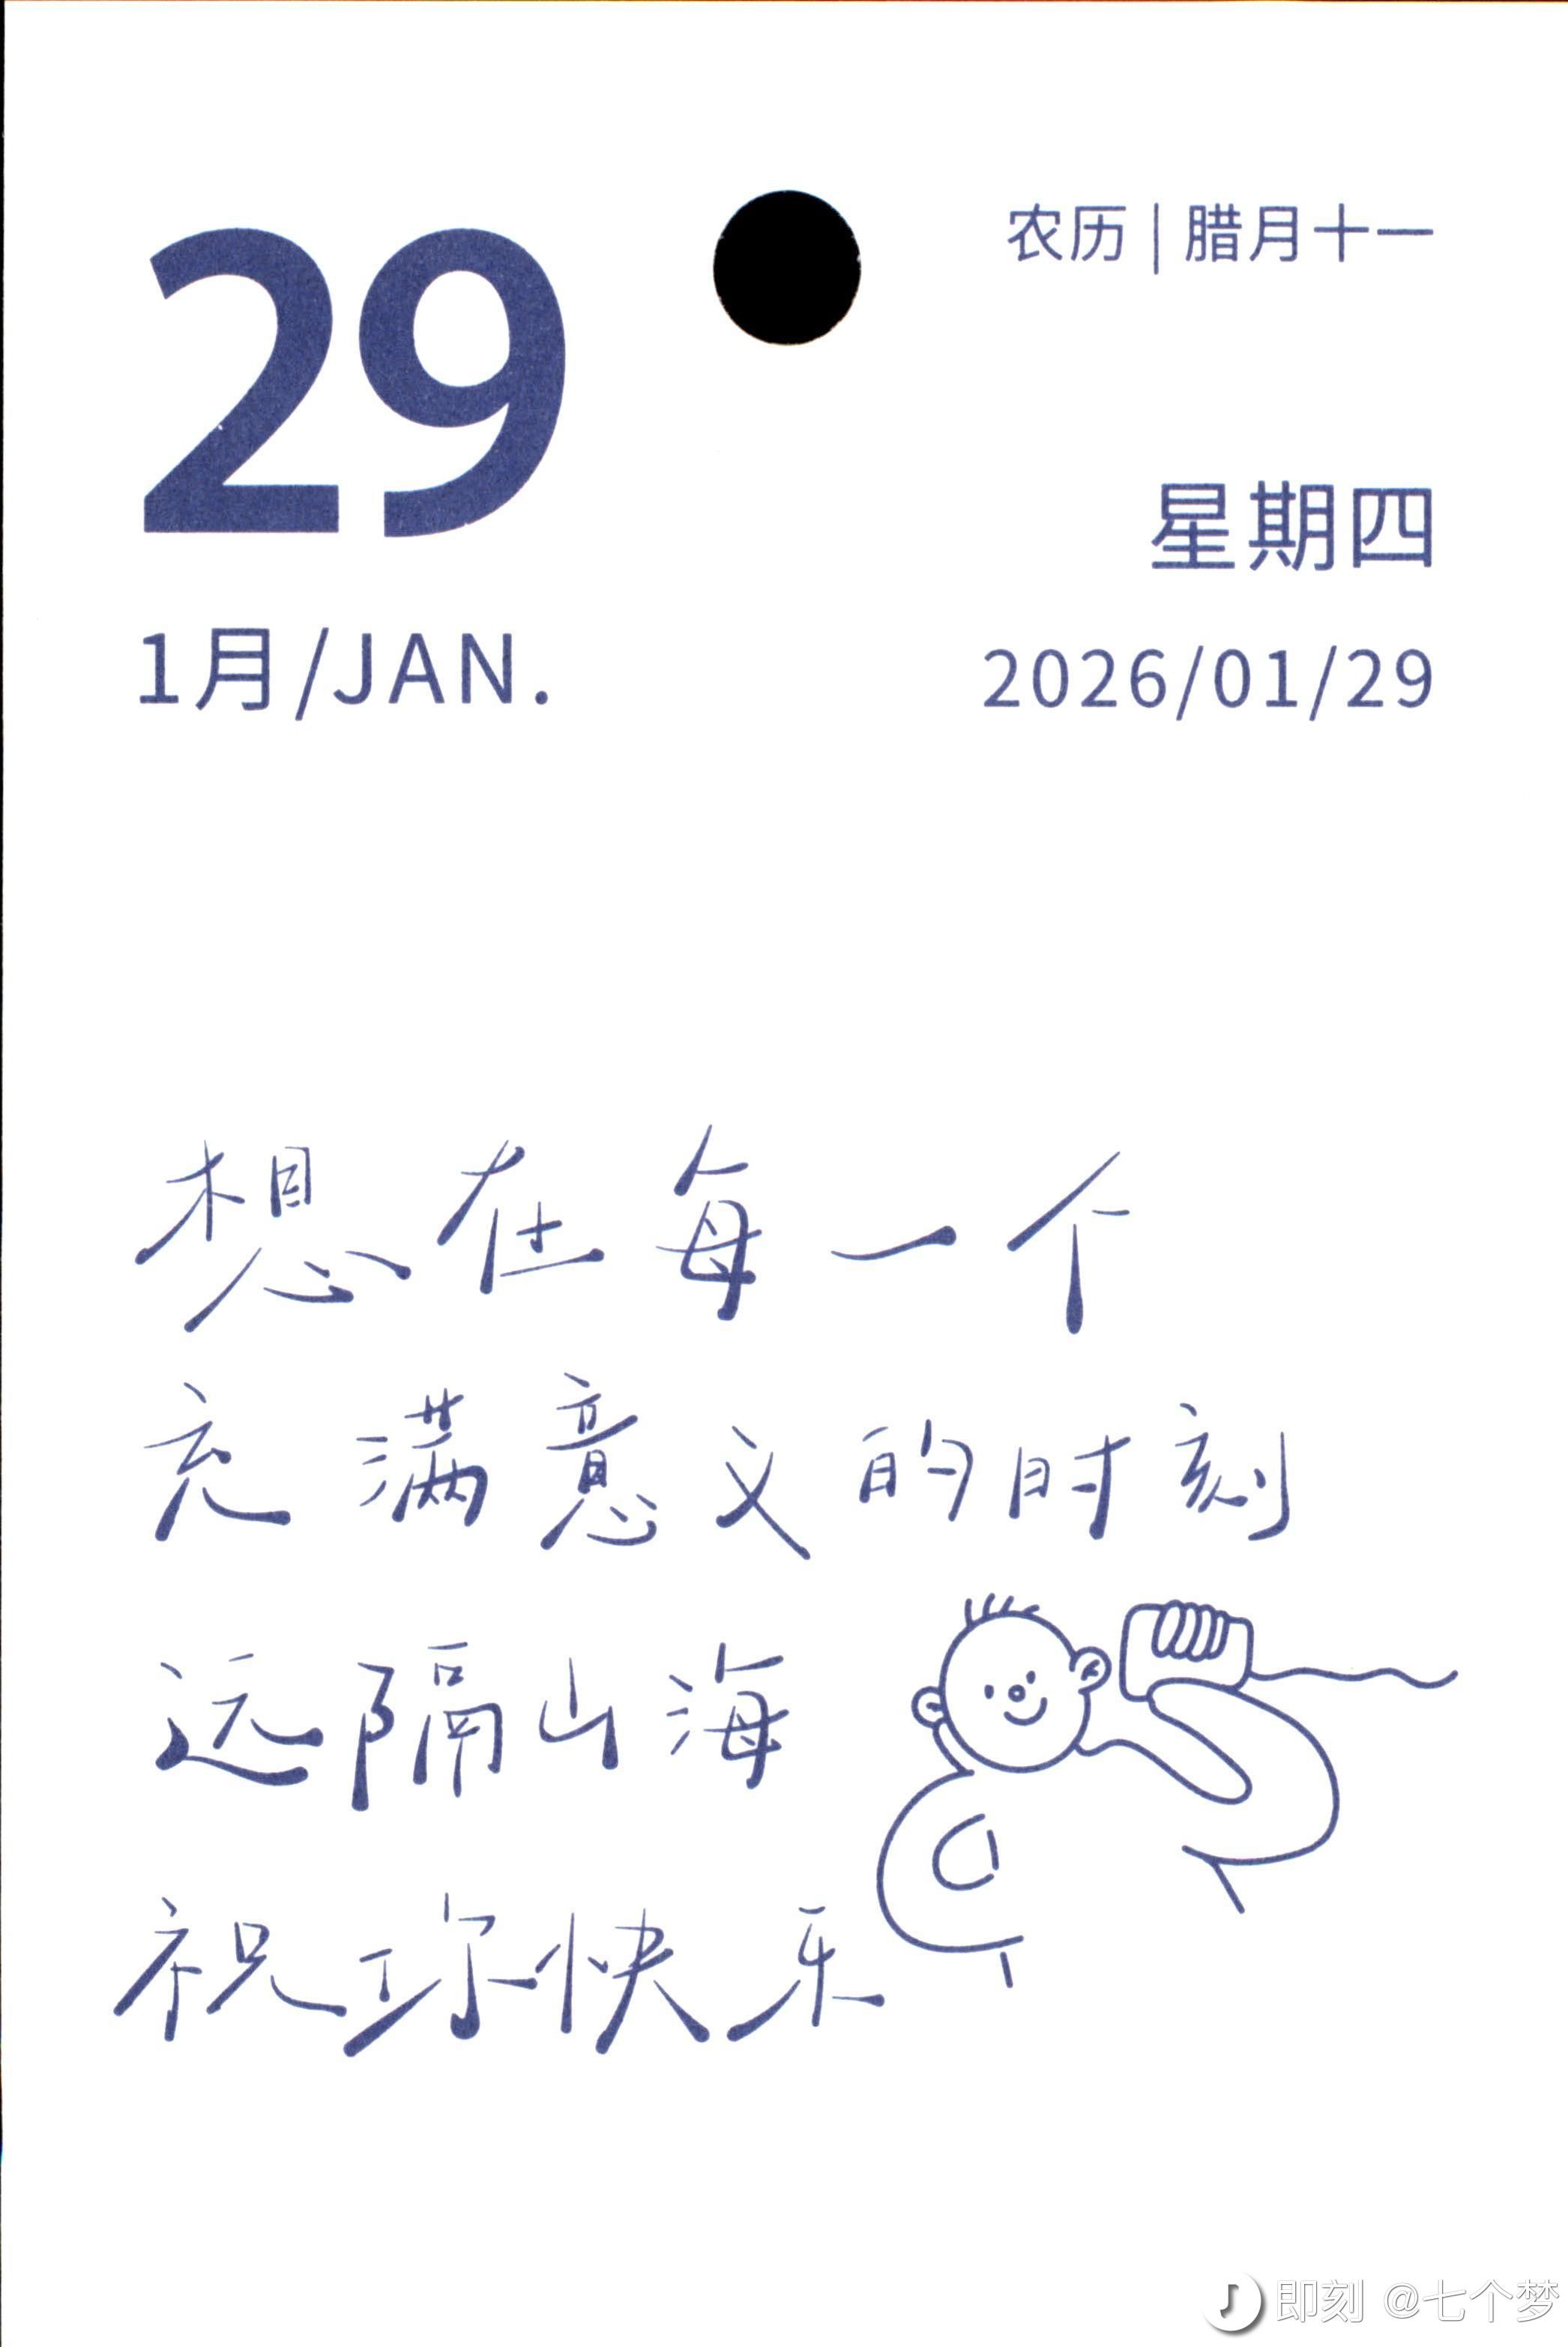 29
农历|腊月十一
星期四
1月/JAN.
2026/01/29
想在每一个
充满意义的时刻
远隔山海
祝你快乐
即刻 @七个梦